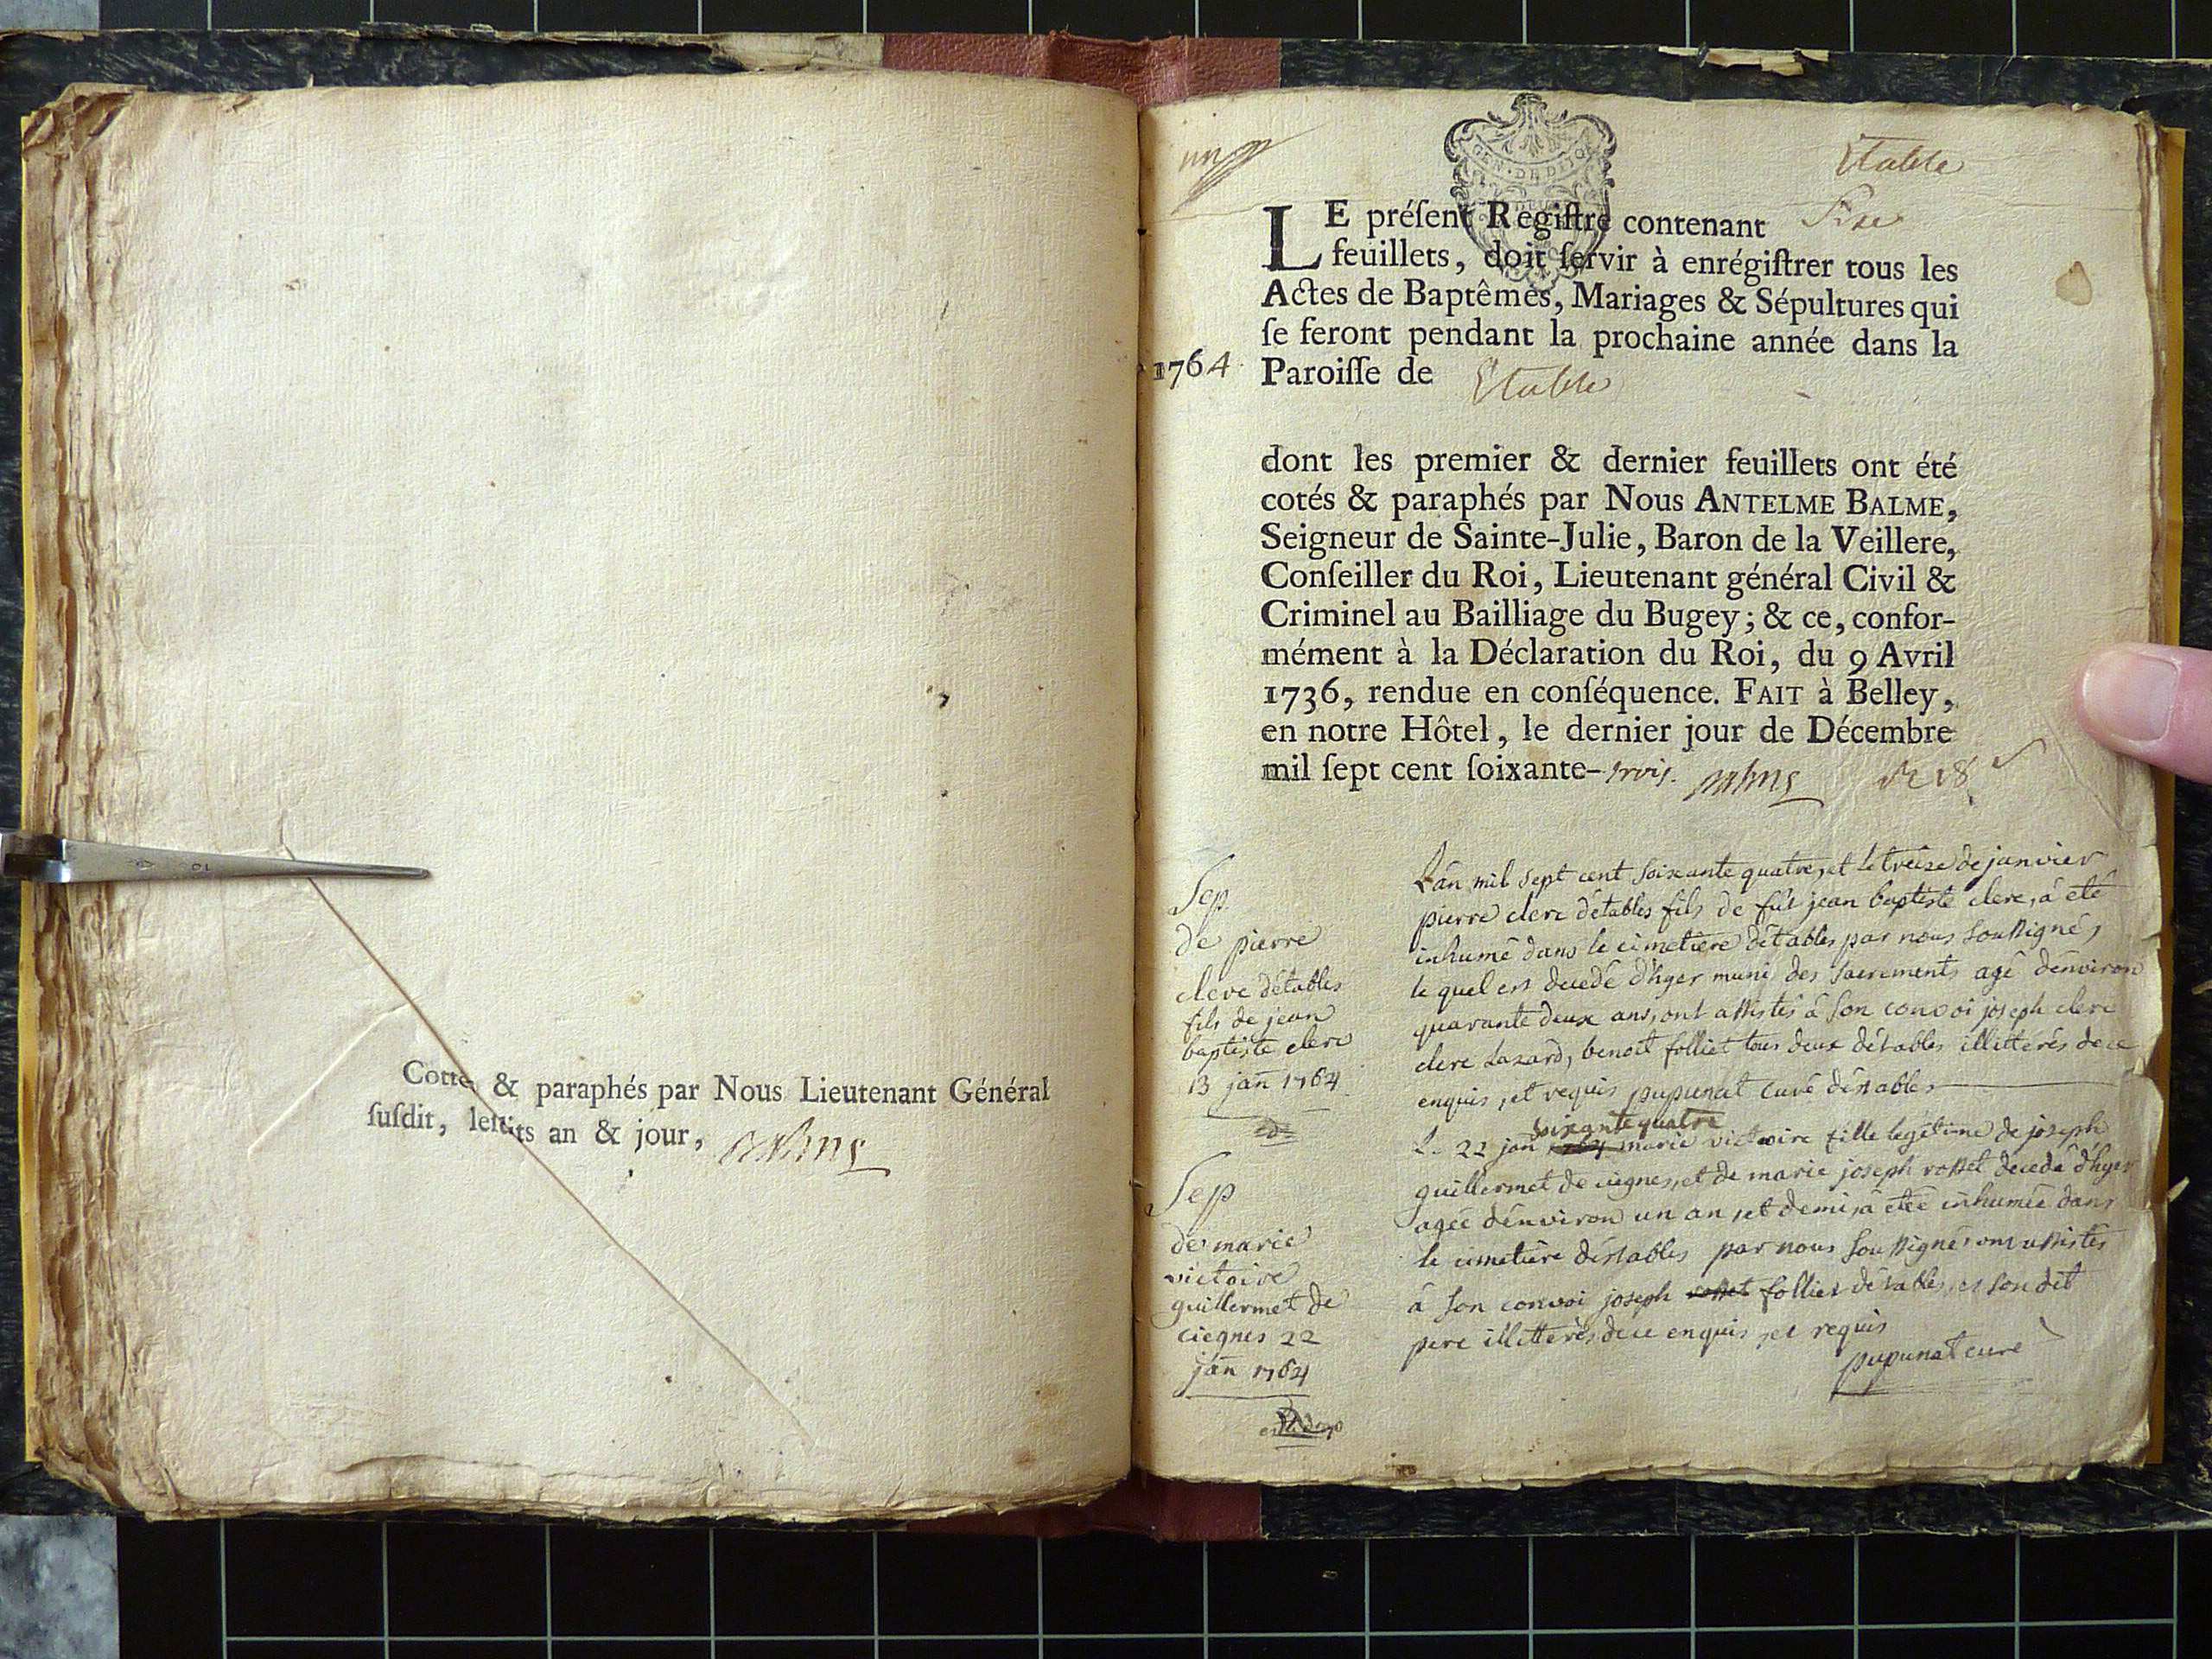 Cottés & paraphés par Nous Lieutenant Général
ſuſdit, leſdits an & jour,
un
GEN · DE DIJON
Etable
LE préſent Regiſtre contenant Six
feuillets, doit ſervir à enrégiſtrer tous les
Actes de Baptêmes, Mariages & Sépultures qui
ſe feront pendant la prochaine année dans la
1764 Paroiſſe de Etable
dont les premier & dernier feuillets ont été
cotés & paraphés par Nous ANTELME BALME,
Seigneur de Sainte-Julie, Baron de la Veillere,
Conſeiller du Roi, Lieutenant général Civil &
Criminel au Bailliage du Bugey; & ce, confor-
mément à la Déclaration du Roi, du 9 Avril
1736, rendue en conſéquence. FAIT à Belley,
en notre Hôtel, le dernier jour de Décembre
mil ſept cent ſoixante-trois.
Sep
de pierre
clerc détables
fils de jean
baptiste clerc
13 jañ 1764
L'an mil sept cent soixante quatre, et le treize de janvier
pierre clerc détables fils de fût jean baptiste clerc, a été
inhumé dans le cimetière détables par nous soussigné,
le quel est decedé d'hyer muni des sacrements agé denviron
quarante deux ans, ont assistés à son convoi joseph clerc
clerc Lazard, benoit folliet tous deux détables illitterés de ce
enquis, et requis pupunat curé déstables
Sep
de marie
victoire
guillermet de
ciegnes 22
jañ 1764
soixante quatre
L. 22 jañ marie victoire fille legitime de joseph
guillermet de ciegnes, et de marie joseph rosset decedé d'hyer
agée d'environ un an, et demi, à etée inhumée dans
le cimetière déstables par nous soussigné, ont assistés
à son convoi joseph rosset folliet détables, et son dit
pere illitterés de ce enquis, et requis
pupunat curé